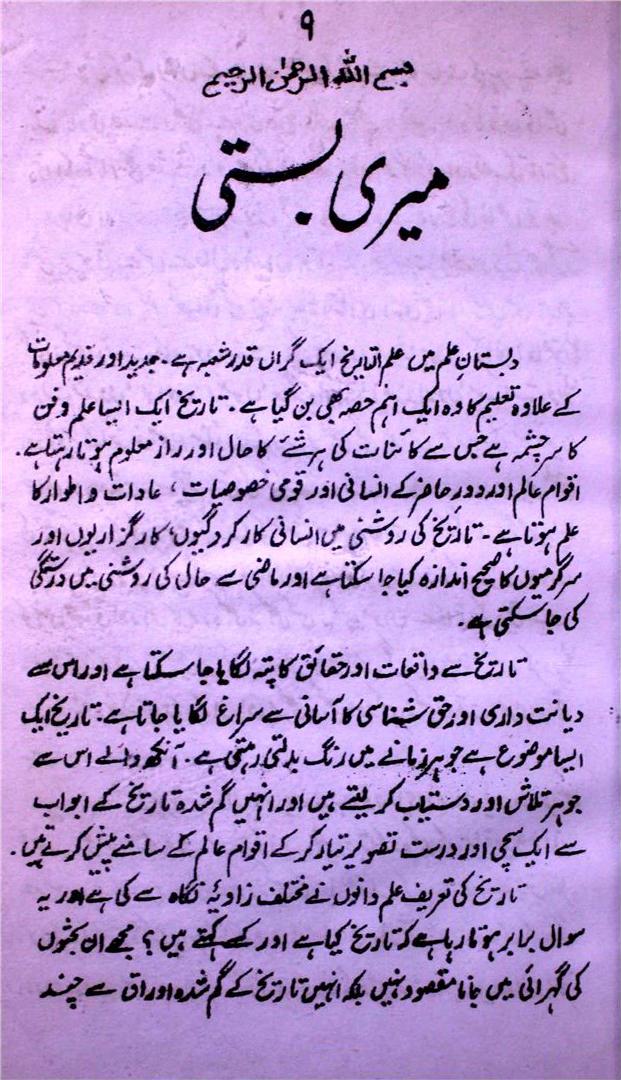 ۹
بسم اللہ الرحمٰن الرحیم
میری بستی
دبستانِ علم میں علم التاریخ ایک گراں قدر شعبہ ہے۔ جدید اور قدیم معلومات
کے علاوہ تعلیم کا وہ ایک اہم حصہ بھی بن گیا ہے۔ تاریخ ایک ایسا علم و فن
کا سرچشمہ ہے جس سے کائنات کی ہر شئے کا حال اور راز معلوم ہوتا رہتا ہے۔
اقوام عالم اور دورِ حاضر کے انسانی اور قومی خصوصیات، عادات و اطوار کا
علم ہوتا ہے۔ تاریخ کی روشنی میں انسانی کارکردگیوں، کارگزاریوں اور
سرگرمیوں کا صحیح اندازہ کیا جا سکتا ہے اور ماضی سے حال کی روشنی میں درستگی
کی جا سکتی ہے۔
تاریخ سے واقعات اور حقائق کا پتہ لگایا جا سکتا ہے اور اس سے
دیانت داری اور حق شناسی کا آسانی سے سراغ لگایا جاتا ہے۔ تاریخ ایک
ایسا موضوع ہے جو ہر زمانے میں رنگ بدلتی رہتی ہے۔ آنکھ والے اس سے
جوہر تلاش اور دستیاب کر لیتے ہیں اور انہیں گم شدہ تاریخ کے ابواب
سے ایک سچی اور درست تصویر تیار کر کے اقوام عالم کے سامنے پیش کرتے ہیں۔
تاریخ کی تعریف علم دانوں نے مختلف زاویۂ نگاہ سے کی ہے اور یہ
سوال برابر ہوتا رہا ہے کہ تاریخ کیا ہے اور کسے کہتے ہیں؟ مجھے ان بحثوں
کی گہرائی میں جانا مقصود نہیں بلکہ انہیں تاریخ کے گم شدہ اوراق سے چند